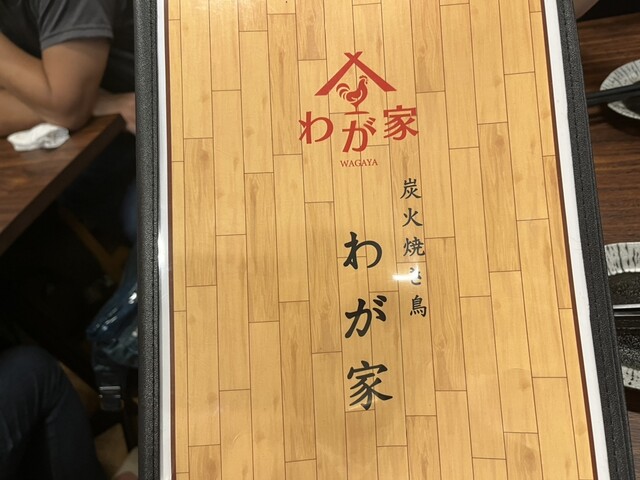 わが家
WAGAYA
炭火焼き鳥
わが家